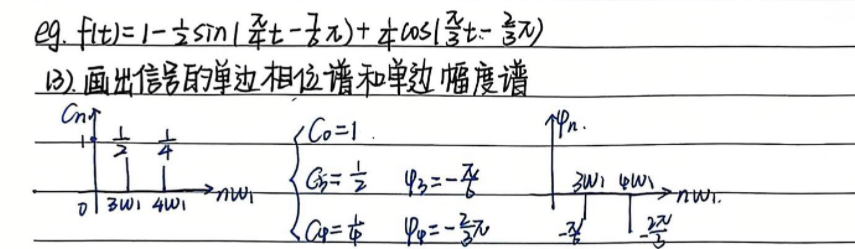 eg. f(t)=1-½sin(π/4 t-7/6 π)+¼cos(π/3 t-2/3 π)
(3). 画出信号的单边相位谱和单边幅度谱
Cn
1 1/2 1/4
0 3ω₁ 4ω₁ nω₁
C₀=1.
C₃=1/2 φ₃=-π/6
C₄=1/4 φ₄=-2/3 π
φn.
3ω₁ 4ω₁ nω₁.
-π/6 -2π/3